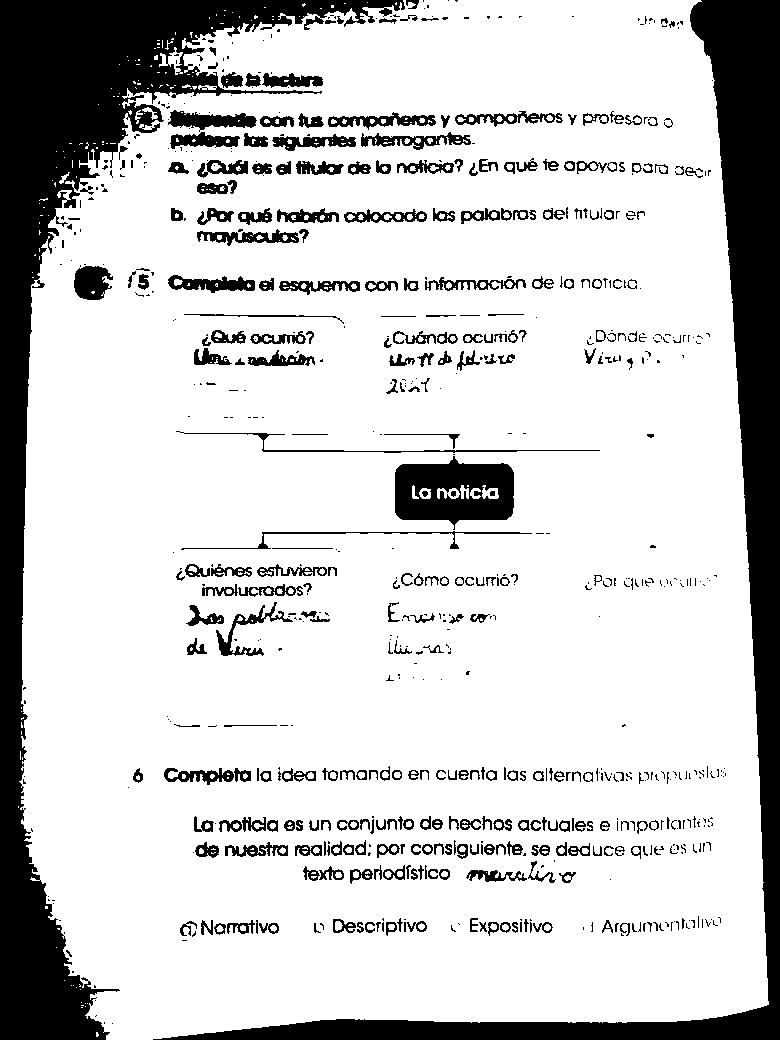 de la lectura
4 Responde con tus compañeros y compañeros y profesora o
profesor las siguientes interrogantes.
a. ¿Cuál es el titular de la noticia? ¿En qué te apoyas para decir
eso?
b. ¿Por qué habrán colocado las palabras del titular en
mayúsculas?
5 Completa el esquema con la información de la noticia.
¿Qué ocurrió?
Una inundación.
¿Cuándo ocurrió?
de febrero
¿Dónde ocurrió?
La noticia
¿Quiénes estuvieron
involucrados?
Los pobladores
de Virú.
¿Cómo ocurrió?
con
¿Por qué ocurrió?
6 Completa la idea tomando en cuenta las alternativas propuestas
La noticia es un conjunto de hechos actuales e importantes
de nuestra realidad; por consiguiente, se deduce que es un
texto periodístico narrativo
a Narrativo b Descriptivo c Expositivo d Argumentativo